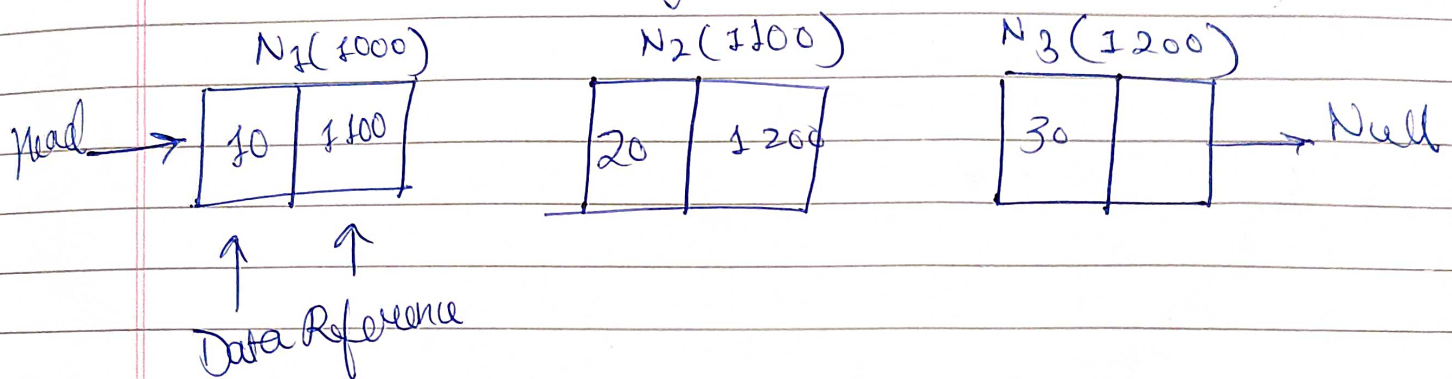 N1(1000) N2(1100) N3(1200)
Head 10 1100 20 1200 30 Null
Data Reference